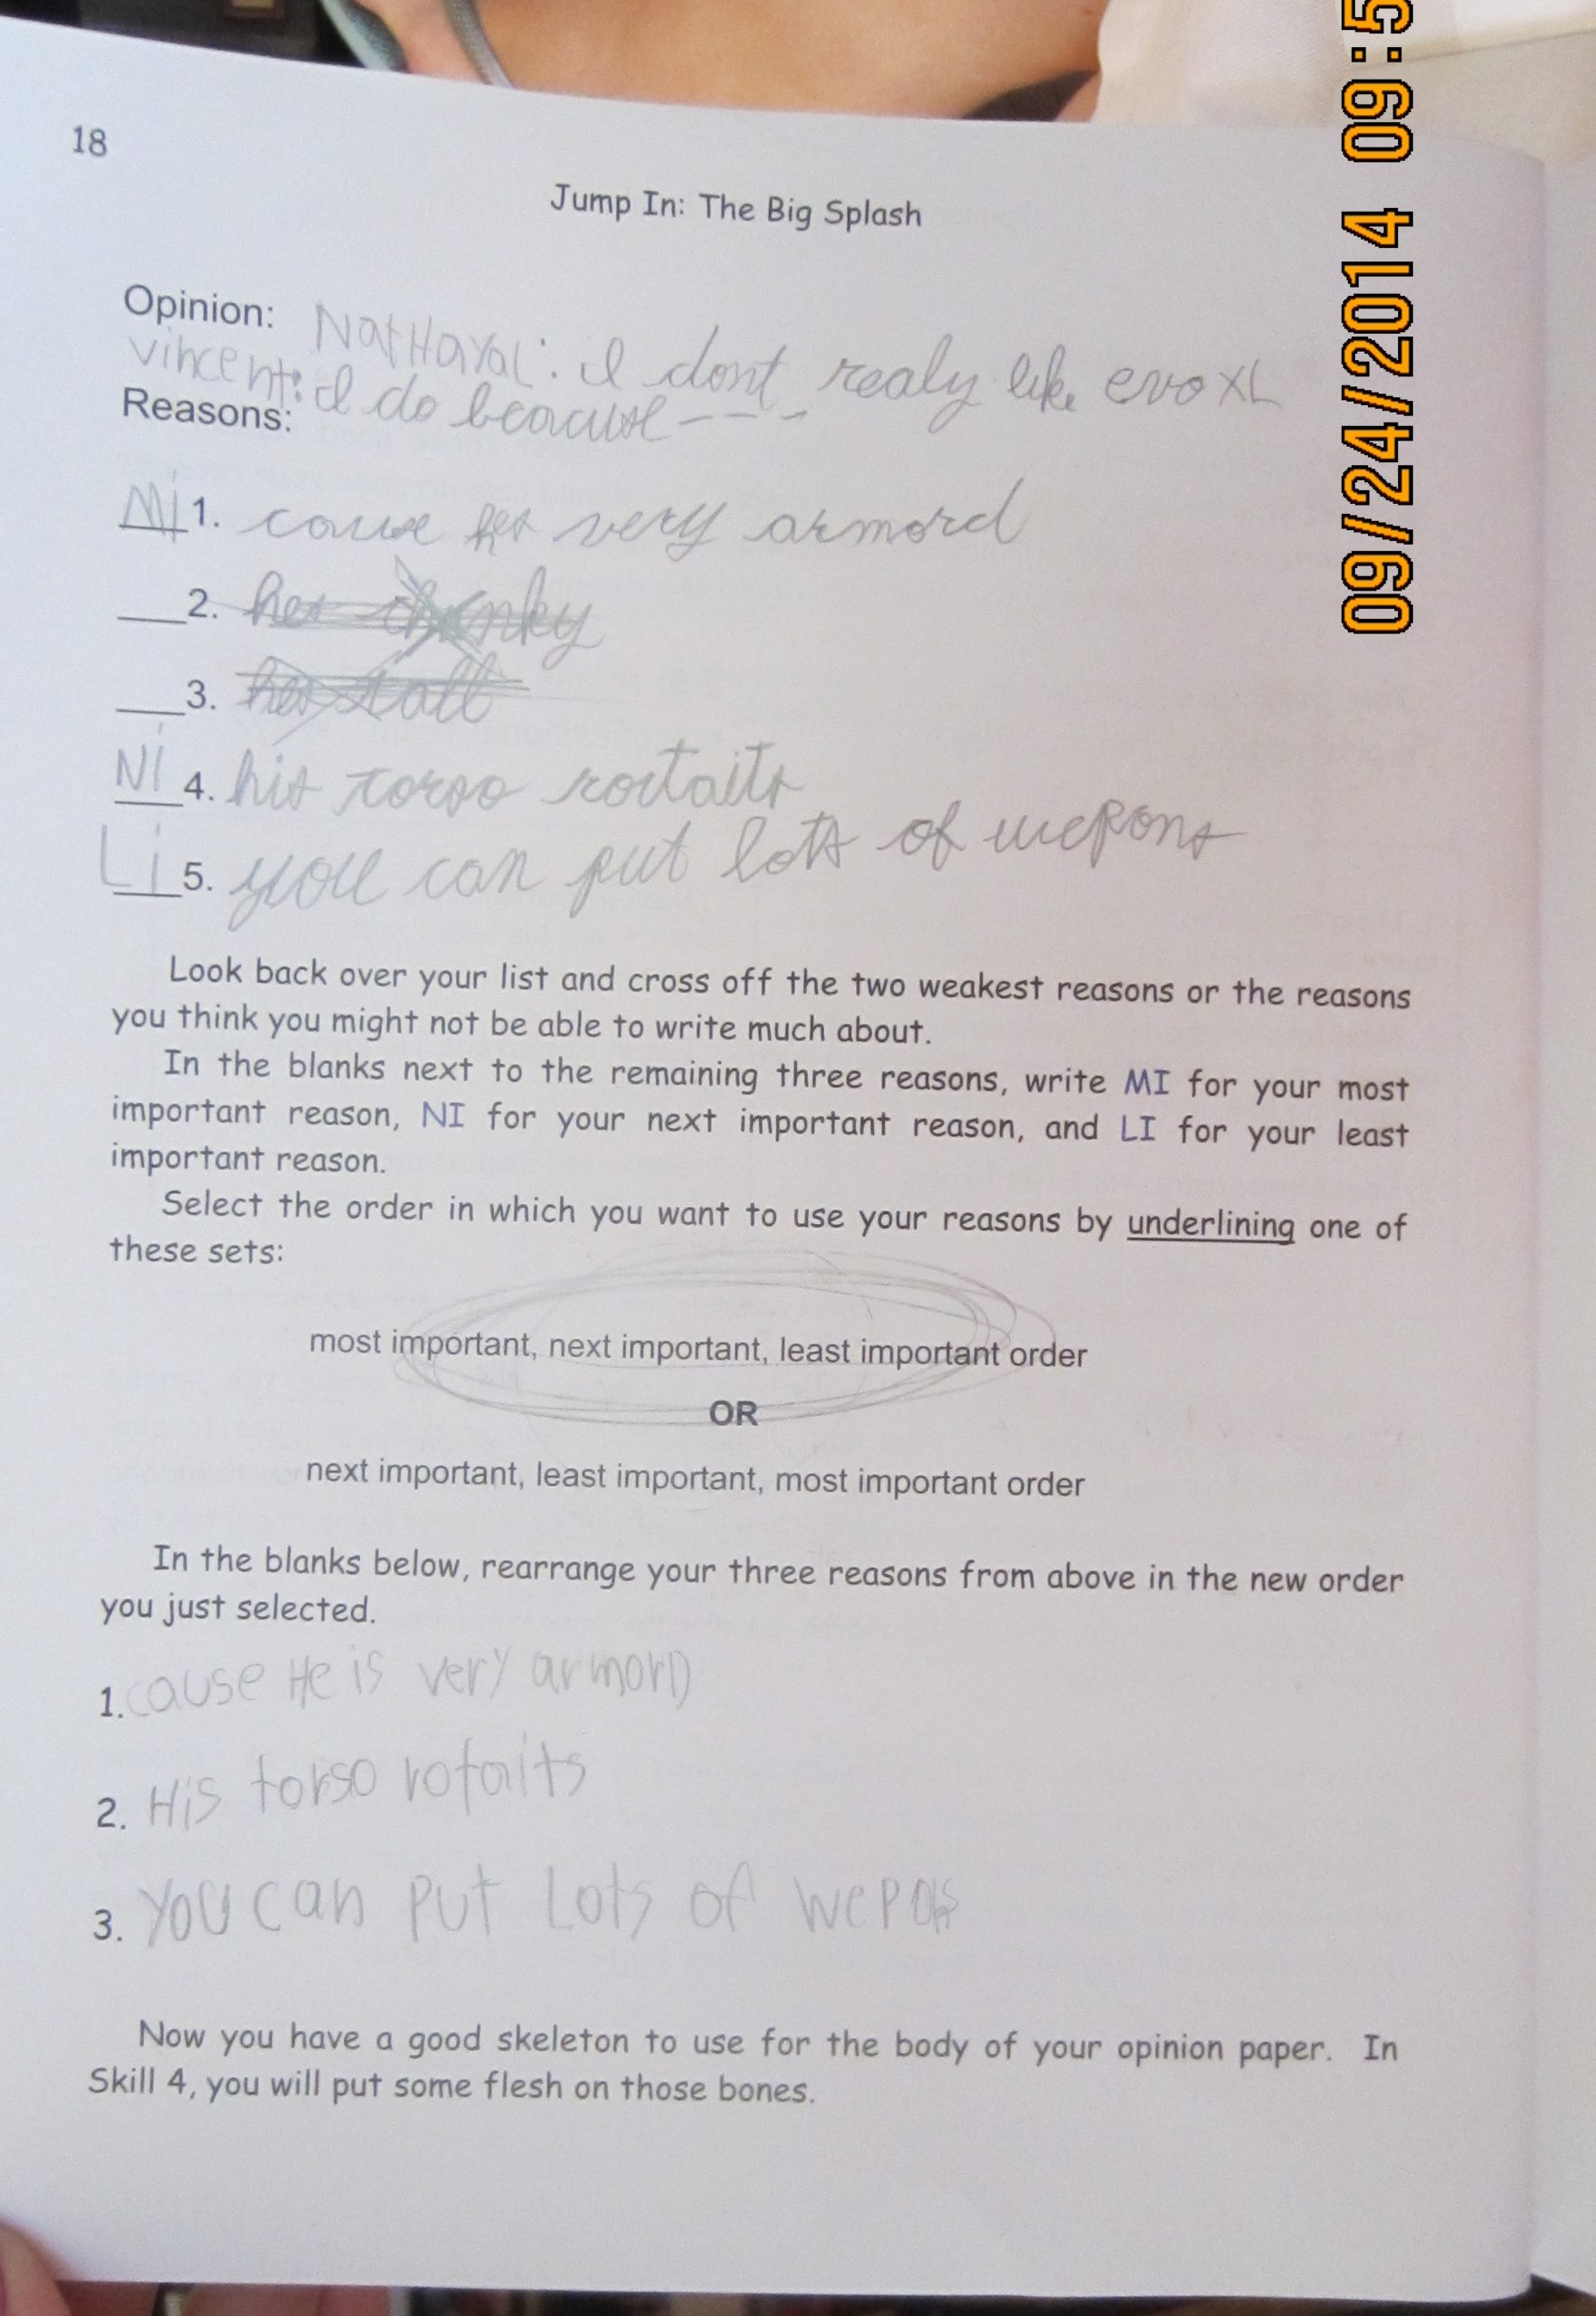 18
Jump In: The Big Splash
Opinion: NatHaYal: I dont realy like evo XL
vincent: I do beacuse - - - -
Reasons:
Mi 1. cause hes very armord
2. hes chunky
3. hes tall
NI 4. his torso rotaits
Li 5. you can put lots of wepons
Look back over your list and cross off the two weakest reasons or the reasons
you think you might not be able to write much about.
In the blanks next to the remaining three reasons, write MI for your most
important reason, NI for your next important reason, and LI for your least
important reason.
Select the order in which you want to use your reasons by underlining one of
these sets:
most important, next important, least important order
OR
next important, least important, most important order
In the blanks below, rearrange your three reasons from above in the new order
you just selected.
1. cause He is very armorD
2. His torso rotaits
3. You can put Lots of wepons
Now you have a good skeleton to use for the body of your opinion paper. In
Skill 4, you will put some flesh on those bones.
09/24/2014 09:5